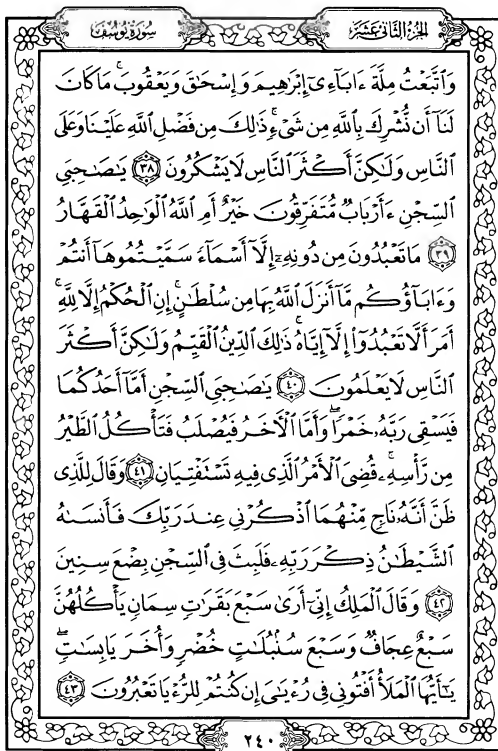 سُورَةُ يُوسُفَ الجُزءُ الثَّانِى عَشَرَ
وَٱتَّبَعْتُ مِلَّةَ ءَابَآءِىٓ إِبْرَٰهِيمَ وَإِسْحَٰقَ وَيَعْقُوبَ ۚ مَا كَانَ
لَنَآ أَن نُّشْرِكَ بِٱللَّهِ مِن شَىْءٍ ۚ ذَٰلِكَ مِن فَضْلِ ٱللَّهِ عَلَيْنَا وَعَلَى
ٱلنَّاسِ وَلَٰكِنَّ أَكْثَرَ ٱلنَّاسِ لَا يَشْكُرُونَ ٣٨ يَٰصَىٰحِبَىِ
ٱلسِّجْنِ ءَأَرْبَابٌ مُّتَفَرِّقُونَ خَيْرٌ أَمِ ٱللَّهُ ٱلْوَٰحِدُ ٱلْقَهَّارُ
٣٩ مَا تَعْبُدُونَ مِن دُونِهِۦٓ إِلَّآ أَسْمَآءً سَمَّيْتُمُوهَآ أَنتُمْ
وَءَابَآؤُكُم مَّآ أَنزَلَ ٱللَّهُ بِهَا مِن سُلْطَٰنٍ ۚ إِنِ ٱلْحُكْمُ إِلَّا لِلَّهِ ۚ
أَمَرَ أَلَّا تَعْبُدُوٓا۟ إِلَّآ إِيَّاهُ ۚ ذَٰلِكَ ٱلدِّينُ ٱلْقَيِّمُ وَلَٰكِنَّ أَكْثَرَ
ٱلنَّاسِ لَا يَعْلَمُونَ ٤٠ يَٰصَىٰحِبَىِ ٱلسِّجْنِ أَمَّآ أَحَدُكُمَا
فَيَسْقِى رَبَّهُۥ خَمْرًا ۖ وَأَمَّا ٱلْءَاخَرُ فَيُصْلَبُ فَتَأْكُلُ ٱلطَّيْرُ
مِن رَّأْسِهِۦ ۚ قُضِىَ ٱلْأَمْرُ ٱلَّذِى فِيهِ تَسْتَفْتِيَانِ ٤١ وَقَالَ لِلَّذِى
ظَنَّ أَنَّهُۥ نَاجٍ مِّنْهُمَا ٱذْكُرْنِى عِندَ رَبِّكَ فَأَنسَىٰهُ
ٱلشَّيْطَٰنُ ذِكْرَ رَبِّهِۦ فَلَبِثَ فِى ٱلسِّجْنِ بِضْعَ سِنِينَ
٤٢ وَقَالَ ٱلْمَلِكُ إِنِّىٓ أَرَىٰ سَبْعَ بَقَرَٰتٍ سِمَانٍ يَأْكُلُهُنَّ
سَبْعٌ عِجَافٌ وَسَبْعَ سُنۢبُلَٰتٍ خُضْرٍ وَأُخَرَ يَابِسَٰتٍ ۖ
يَٰٓأَيُّهَا ٱلْمَلَأُ أَفْتُونِى فِى رُءْيَٰىَ إِن كُنتُمْ لِلرُّءْيَا تَعْبُرُونَ ٤٣
٢٤٠